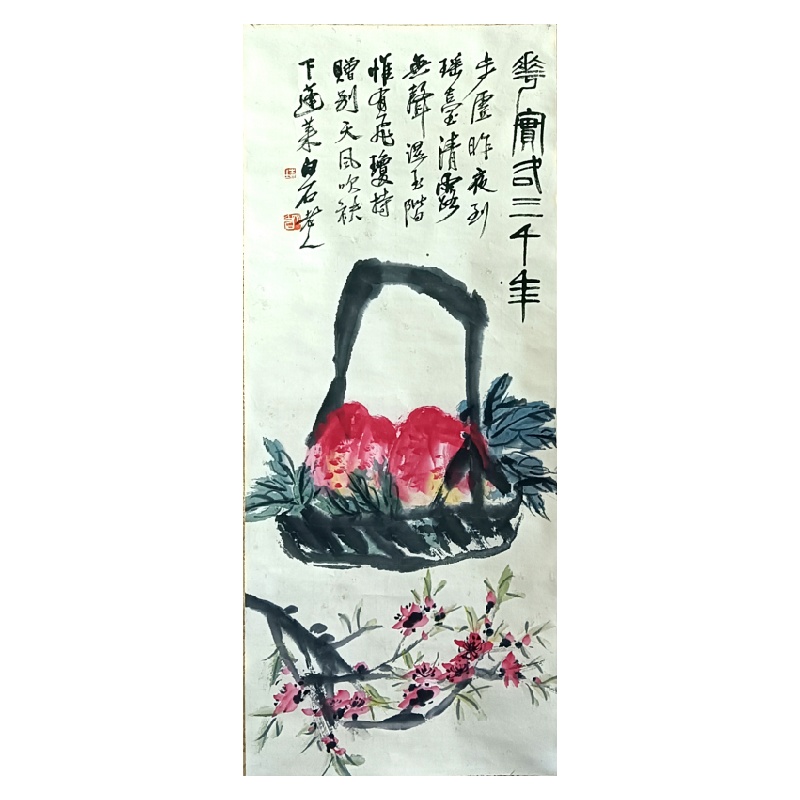 華實三千年
步虛昨夜到
瑤臺清露
無聲濕玉階
惟有飛瓊持
贈別天風吹袂
下蓬萊白石老人